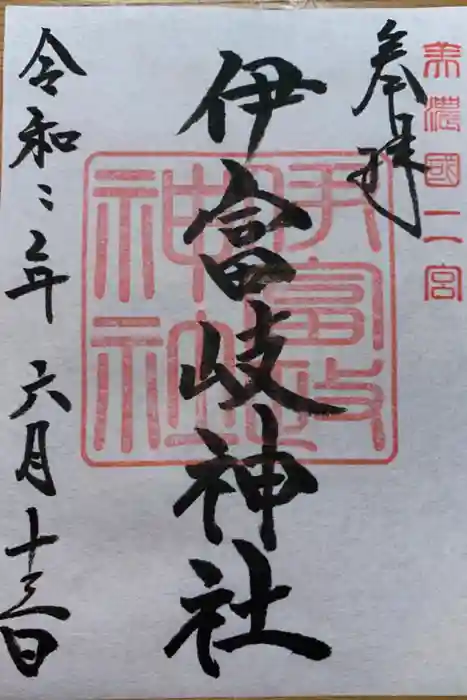 美濃國二宮
奉拝
伊富岐神社
伊富岐
神社
令和二年六月十三日